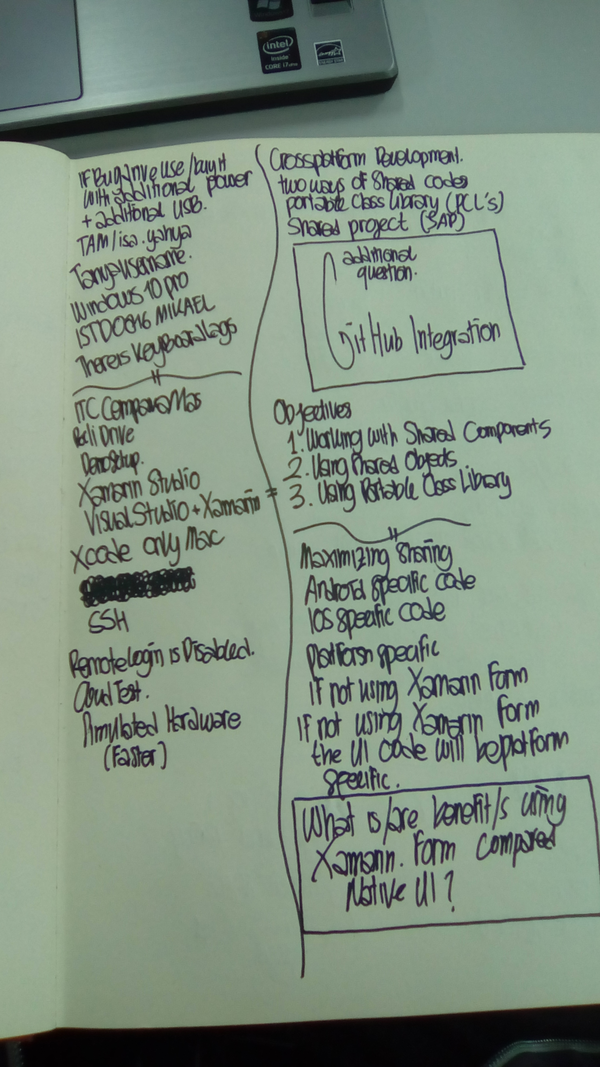 intel
inside
CORE i7
IF Bug Drive use/buy it
with additional power
+ additional USB.
TAM/isa.yahya
Tanya Username.
Windows 10 pro
MIKAEL
There is Keyboard lags
ITC
Drive
Demo Setup.
Xamarin Studio
Visual Studio + Xamarin =
Xcode only Mac
SSH
Remote Login is Disabled.
Cloud Test.
Hardware
(Faster)
Crossplatform Development.
two ways of Shared codes
portable Class Library (PCL's)
Shared project (SAP)
additional
question.
GitHub Integration
Objectives
1. Working with Shared Components
2. Using Shared Objects
3. Using Portable Class Library
Maximizing Sharing
Android specific code
IOS specific code
platform specific
If not using Xamarin Form
If not using Xamarin Form
the UI code will be platform
specific.
What is/are benefit/s using
Xamarin.Form compared
Native UI?